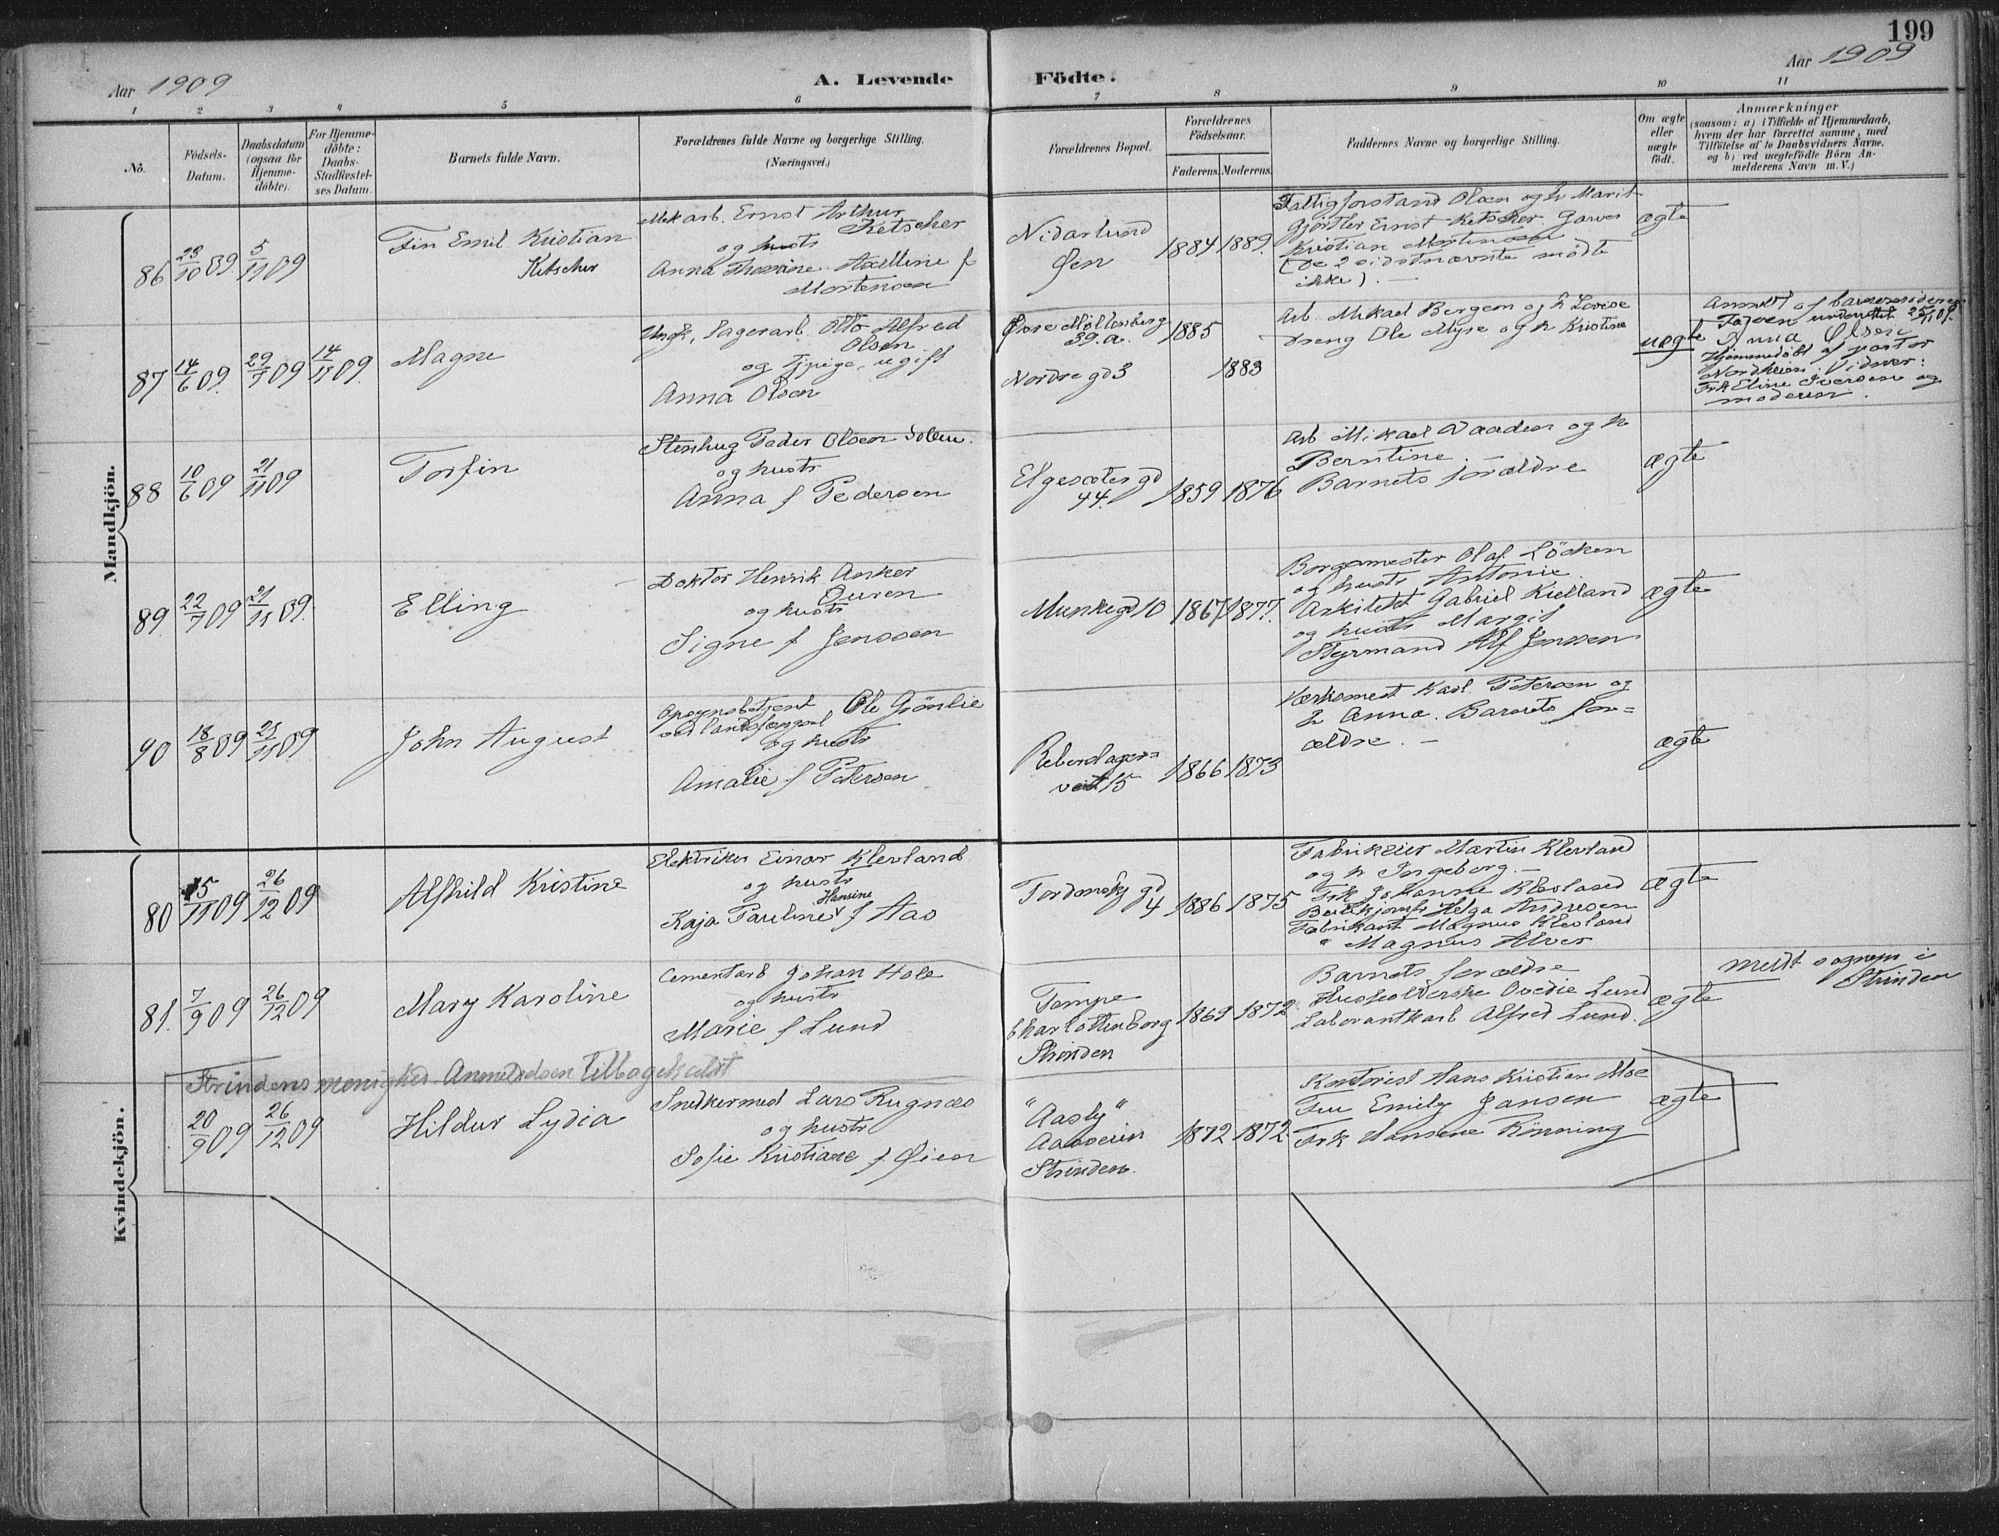 199
Aar 1909
A. Levende Födte.
Aar 1909
1 2 3 4 5 6 7 8 9 10 11
No.
Födsels-
Datum.
Daabsdatum
(ogsaa för
Hjemme-
döbte).
For Hjemme-
döbte:
Daabs-
Stadfæstel-
ses Datum.
Barnets fulde Navn.
Forældrenes fulde Navne og borgerlige Stilling.
(Næringsvei.)
Forældrenes Bopæl.
Forældrenes
Födselsaar.
Faderens. Moderens.
Faddernes Navne og borgerlige Stilling.
Om ægte
eller
uægte
födt.
Anmærkninger
(saasom: a) i Tilfælde af Hjemmedaab,
hvem der har forrettet samme, med
Tilföielse af to Daabsvidners Navne,
og b) ved uægtefödte Börn An-
melderens Navn m. V.)
Mandkjön.
86 23/10 09 5/11 09
Fin Emil Kristian
Ketscher
Mek arb. Ernst Arthur
Ketscher
og hustr
Anna Thomine Axelline f
Mortensen
Nidarlund
Øen
1884 1889.
Fattigforstand Olsen og h Marit
Gjørtler Ernst Ketscher Garver
Kristian Mortensen
(De 2 sidstnævnte mødte
ikke).
ægte
87 14/6 09. 29/7 09 14/11 09.
Magne
Ungk, Lagerarb. Otto Alfred
Olsen
og tjpige, ugift
Anna Olsen
Øvre Møllenberg
39.a.
Nordre gd 3
1885
1883
Arb. Mikael Bergem og h Lovise
Dreng Ole Myse og h Kristine
uægte
Anmeldt af barnemoderen
Faderen underrettet 25/11 09.
Anna Olsen
Hjemmedøbt af pastor
Nordheim. Vidner:
Frk Eline Iversen og
moderen.
88 10/6 09 21/11 09
Torfin
Stenhug Peder Olsen Solem.
og hustr
Anna f Pedersen
Elgesæter gd
44.
1859 1876
Arb Mikael Vaaden og h
Berntine.
Barnets forældre
ægte
89. 22/7 09 21/11 09.
Elling
Doktor Henrik Anker
Duren
og hustr
Signe f Jenssen
Munkegd 10
1867 1877.
Borgemester Olaf Löchen
og hustr Antonie
Arkitekt Gabriel Kielland
og hustr Margit
Styrmand Alf Jenssen
ægte
90 18/8 09 25/11 09
John August
Opsynsbetjent Ole Grönlie
ved landsfængsel
og hustr
Amalie f Petersen
Rebslager=
veit 15
1866 1873
Værksmest Karl Petersen og
h Anna. Barnets for=
ældre. –
ægte
Kvindekjön.
80 15/11 09 26/12 09
Alfhild Kristine
Elektriker Einar Klevland
og hustr
Hansine
Kaja Pauline f Aas
Tordenskj gd
4
1886 1875
Fabrikeier Martin Klevland
og h Ingeborg. –
Frk Johanne Klevland
Butikjomfr Helga Andresen
Fabrikant Magnus Klevland
" Magnus Alver
ægte
81. 7/9 09 26/12 09
Mary Karoline
Cementarb Johan Hole
og hustr
Marie f Lund
Tempe
Charlottenborg
Strinden
1869 1872
Barnets forældre
Husholderske Ovedie Lund
Laborantkarl Alfred Lund.
ægte
Meldt sognepr i
Strinden
Strindens menighed. Anmeldelsen tilbagekaldt
20/9 09 26/12 09
Hildur Lydia
Snekkermed Lars Rugnæs
og hustr
Sofie Kristiane f Øien
"Aasly"
Aasveien
Strinden.
1872 1872
Kontorist Hans Kristian Moe
Fru Emily Jansen
Frk Hansene Rönning
ægte